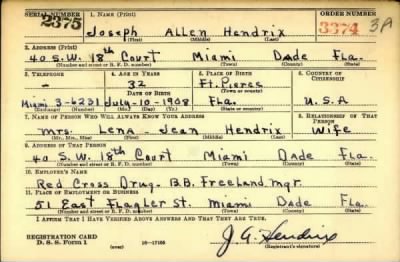 SERIAL NUMBER 1. NAME (Print) ORDER NUMBER
2375 Joseph Allen Hendrix 3374 3A
(First) (Middle) (Last)
2. ADDRESS (Print)
40 S.W. 18th Court Miami Dade Fla.
(Number and street or R. F. D. number) (Town) (County) (State)
3. TELEPHONE 4. AGE IN YEARS 5. PLACE OF BIRTH 6. COUNTRY OF CITIZENSHIP
- 32 Ft. Pierce
DATE OF BIRTH (Town or county)
Miami 3-6231 July-10-1908 Fla. U.S.A
(Exchange) (Number) (Mo.) (Day) (Yr.) (State or country)
7. NAME OF PERSON WHO WILL ALWAYS KNOW YOUR ADDRESS 8. RELATIONSHIP OF THAT PERSON
Mrs. Lena - Jean Hendrix Wife
(Mr., Mrs., Miss) (First) (Middle) (Last)
9. ADDRESS OF THAT PERSON
40 S.W. 18th Court Miami Dade Fla.
(Number and street or R. F. D. number) (Town) (County) (State)
10. EMPLOYER'S NAME
Red Cross Drug. B.B. Freeland. Mgr.
11. PLACE OF EMPLOYMENT OR BUSINESS
51 East Flagler St. Miami Dade Fla.
(Number and street or R. F. D. number) (Town) (County) (State)
I AFFIRM THAT I HAVE VERIFIED ABOVE ANSWERS AND THAT THEY ARE TRUE.
REGISTRATION CARD
D. S. S. Form 1 (over) 16-17105 J. A. Hendrix
(Registrant's signature)